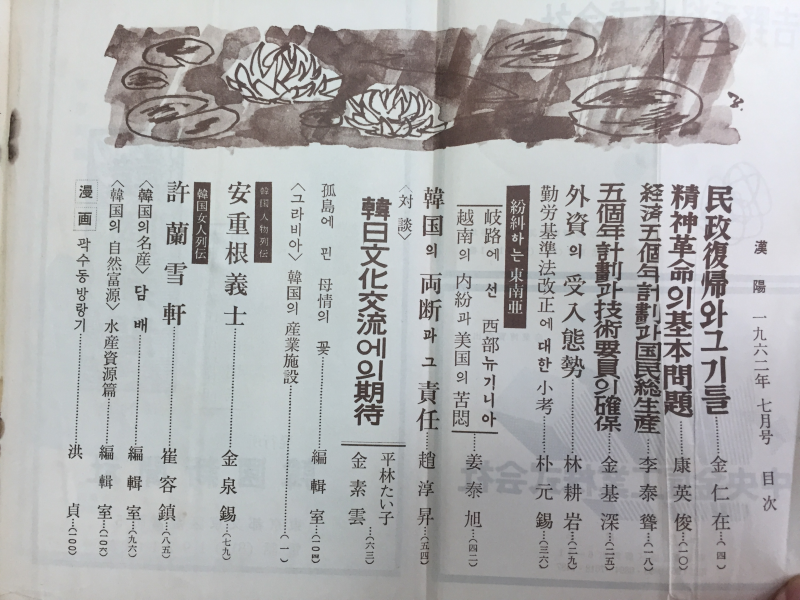 漢陽 一九六二年 七月号 目次
民政復帰와 그 기틀……金仁在…(四)
精神革命의 基本問題……康英俊…(一〇)
経済五個年計劃과 国民総生産……李泰聳…(一八)
五個年計劃과 技術要員의 確保……金基深…(二五)
外資의 受入態勢……林耕岩…(二九)
勤労基準法改正에 대한 小考……朴元錫…(三六)
紛糾하는 東南亜
岐路에 선 西部뉴기니아
越南의 内紛과 美国의 苦悶……姜泰旭…(四二)
韓国의 両断과 그 責任……趙淳昇…(五四)
〈対談〉
韓日文化交流에의 期待
平林たい子
金素雲…(六三)
孤島에 핀 母情의 꽃……編輯室…(102)
〈그라비아〉韓国의 産業施設……(一)
韓国人物列伝
安重根義士……金泉錫…(七九)
韓国女人列伝
許蘭雪軒……崔容鎮…(八五)
〈韓国의 名産〉담배……編輯室…(九六)
〈韓国의 自然富源〉水産資源篇……編輯室
漫画 곽수동방랑기……洪貞…(100)